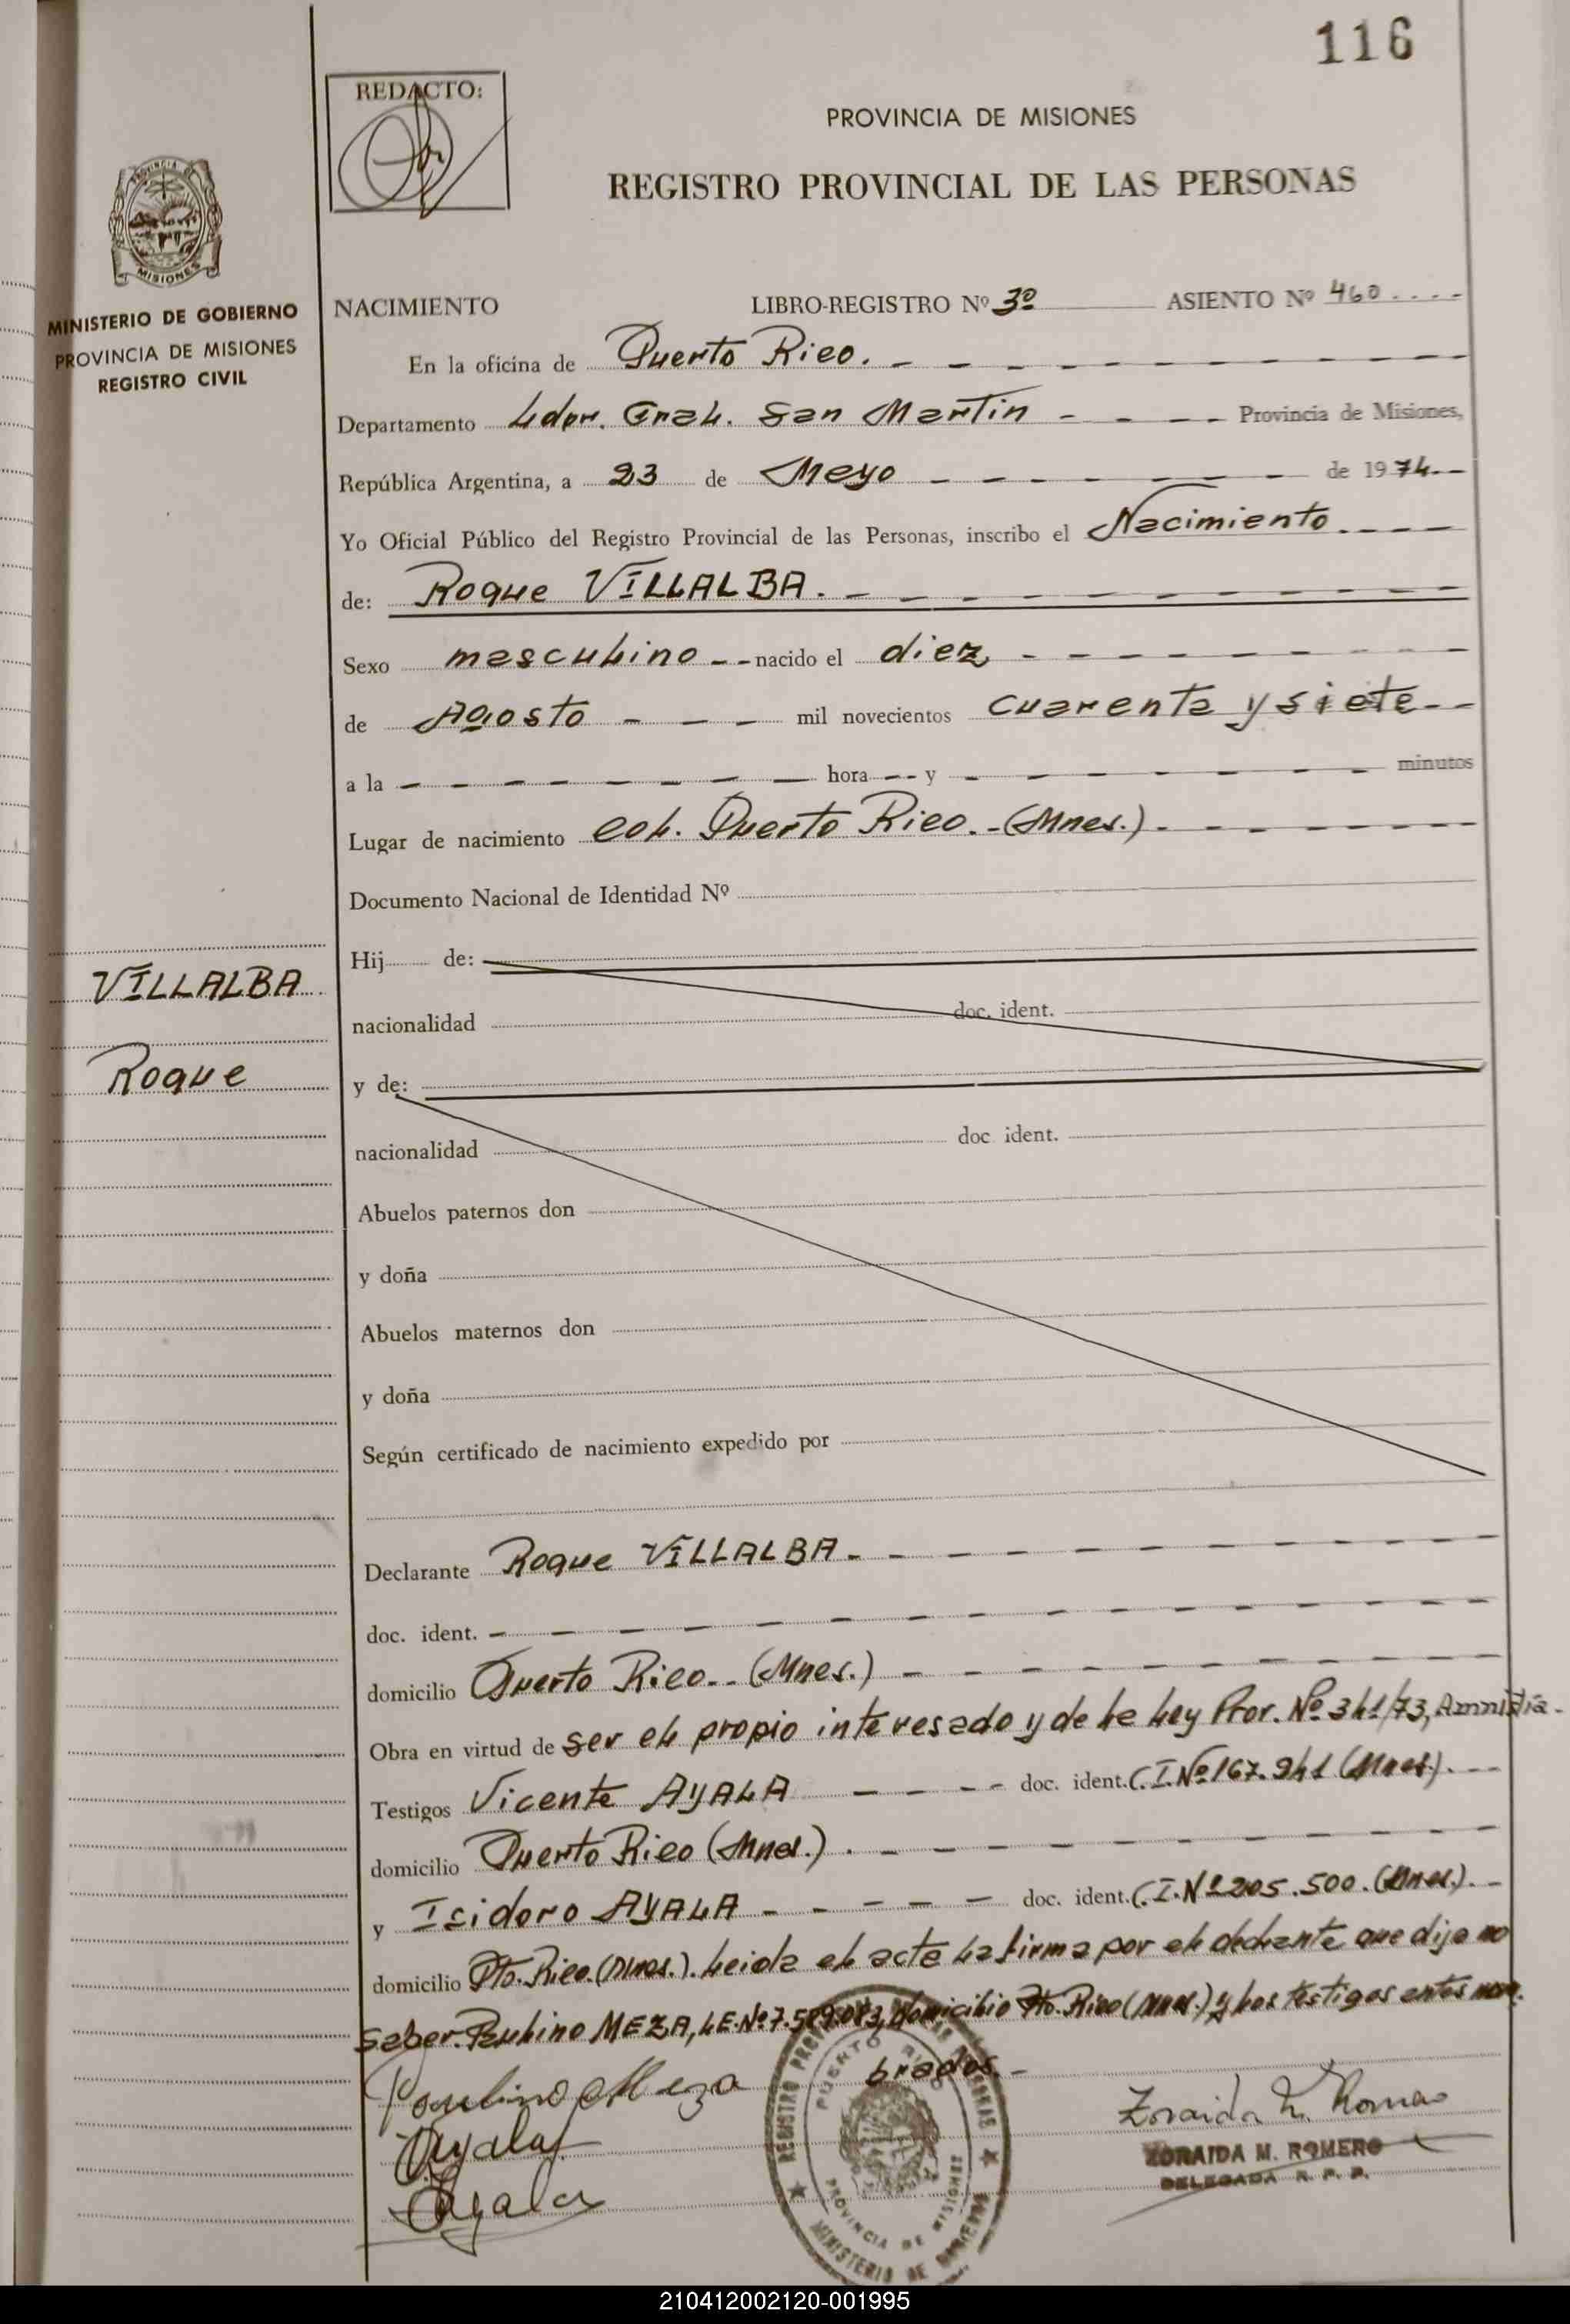 116
REDACTO:
PROVINCIA DE MISIONES
REGISTRO PROVINCIAL DE LAS PERSONAS
MISIONES
MINISTERIO DE GOBIERNO
PROVINCIA DE MISIONES
REGISTRO CIVIL
NACIMIENTO LIBRO-REGISTRO Nº 3º ASIENTO Nº 460
En la oficina de Puerto Rico.
Departamento Ldor. Gral. San Martín Provincia de Misiones,
República Argentina, a 23 de Mayo de 1974
Yo Oficial Público del Registro Provincial de las Personas, inscribo el Nacimiento
de: Roque VILLALBA.
Sexo masculino nacido el diez
de Agosto mil novecientos cuarenta y siete
a la hora y minutos
Lugar de nacimiento Col. Puerto Rico. (Mnes.)
Documento Nacional de Identidad Nº
Hij de:
VILLALBA
nacionalidad doc. ident.
Roque
y de:
nacionalidad doc ident.
Abuelos paternos don
y doña
Abuelos maternos don
y doña
Según certificado de nacimiento expedido por
Declarante Roque VILLALBA
doc. ident.
domicilio Puerto Rico (Mnes.)
Obra en virtud de ser el propio interesado y de la Ley Pror. Nº 341/73, Amnistía
Testigos Vicente AYALA doc. ident. C.I.Nº 167.941 (Mnes.)
domicilio Puerto Rico (Mnes.)
y Isidoro AYALA doc. ident. C.I.Nº 205.500. (Mnes.)
domicilio Pto. Rico. (Mnes.). Leída el acta la firma por el declarante que dijo no
saber. Paulino MEZA, L.E.Nº 7.589.083, domicilio Pto. Rico (Mnes.) y los testigos antes nom-
brados.
Paulino Meza
Ayala
Ayala
Zoraida M. Romero
ZORAIDA M. ROMERO
DELEGADA R. P. P.
PUERTO RICO
PROVINCIA DE MISIONES
210412002120-001995